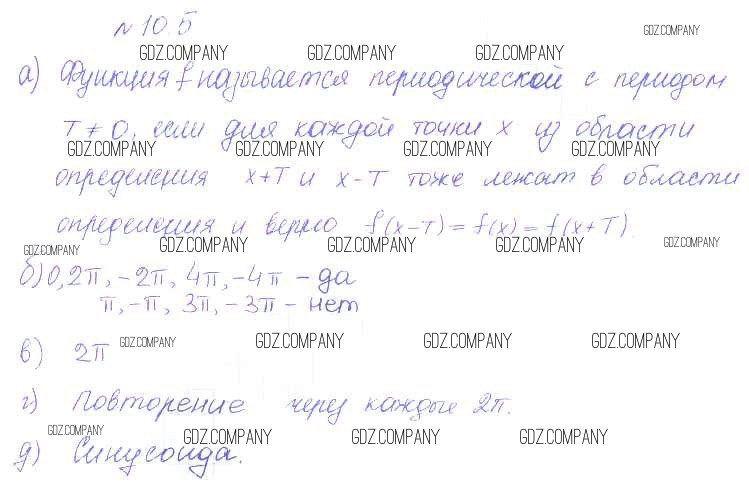 № 10.5
GDZ.COMPANY
GDZ.COMPANY GDZ.COMPANY GDZ.COMPANY
а) Функция f называется периодической с периодом
T ≠ 0, если для каждой точки x из области
GDZ.COMPANY GDZ.COMPANY GDZ.COMPANY GDZ.COMPANY
определения x+T и x-T тоже лежат в области
определения и верно f(x-T) = f(x) = f(x+T).
GDZ.COMPANY GDZ.COMPANY GDZ.COMPANY GDZ.COMPANY GDZ.COMPANY
б) 0, 2π, -2π, 4π, -4π - да
π, -π, 3π, -3π - нет
в) 2π GDZ.COMPANY GDZ.COMPANY GDZ.COMPANY GDZ.COMPANY
г) Повторение через каждые 2π.
GDZ.COMPANY GDZ.COMPANY GDZ.COMPANY GDZ.COMPANY
д) Синусоида.